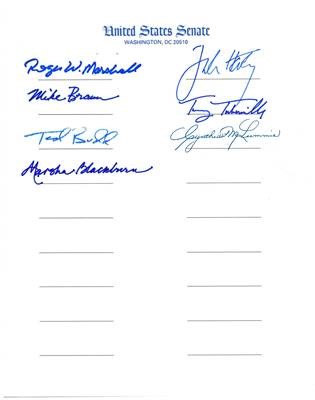 United States Senate
WASHINGTON, DC 20510
Roger W. Marshall
Mike Braun
Ted Budd
Marsha Blackburn
Cynthia M. Lummis